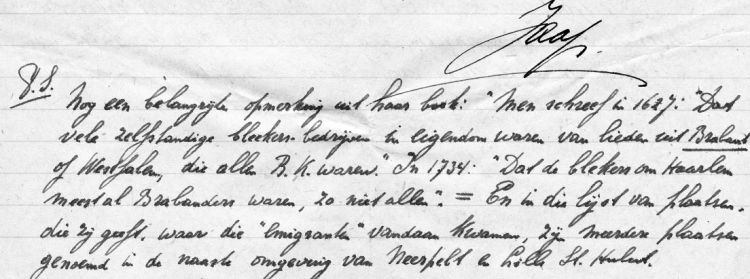 Jaap.
P.S.
Nog een belangrijke opmerking uit haar boek: "Men schreef in 1627: "Dat
vele zelfstandige bleekers-bedrijven in eigendom waren van lieden uit Brabant
of Westfalen, die allen R.K. waren." In 1734: "Dat de blekers om Haarlem
meest al Brabanders waren, zo niet allen". = En in die lijst van plaatsen,
die zij geeft, waar die "emigranten" vandaan kwamen, zijn meerdere plaatsen
genoemd in de naaste omgeving van Neerpelt en Lille St. Hubert.